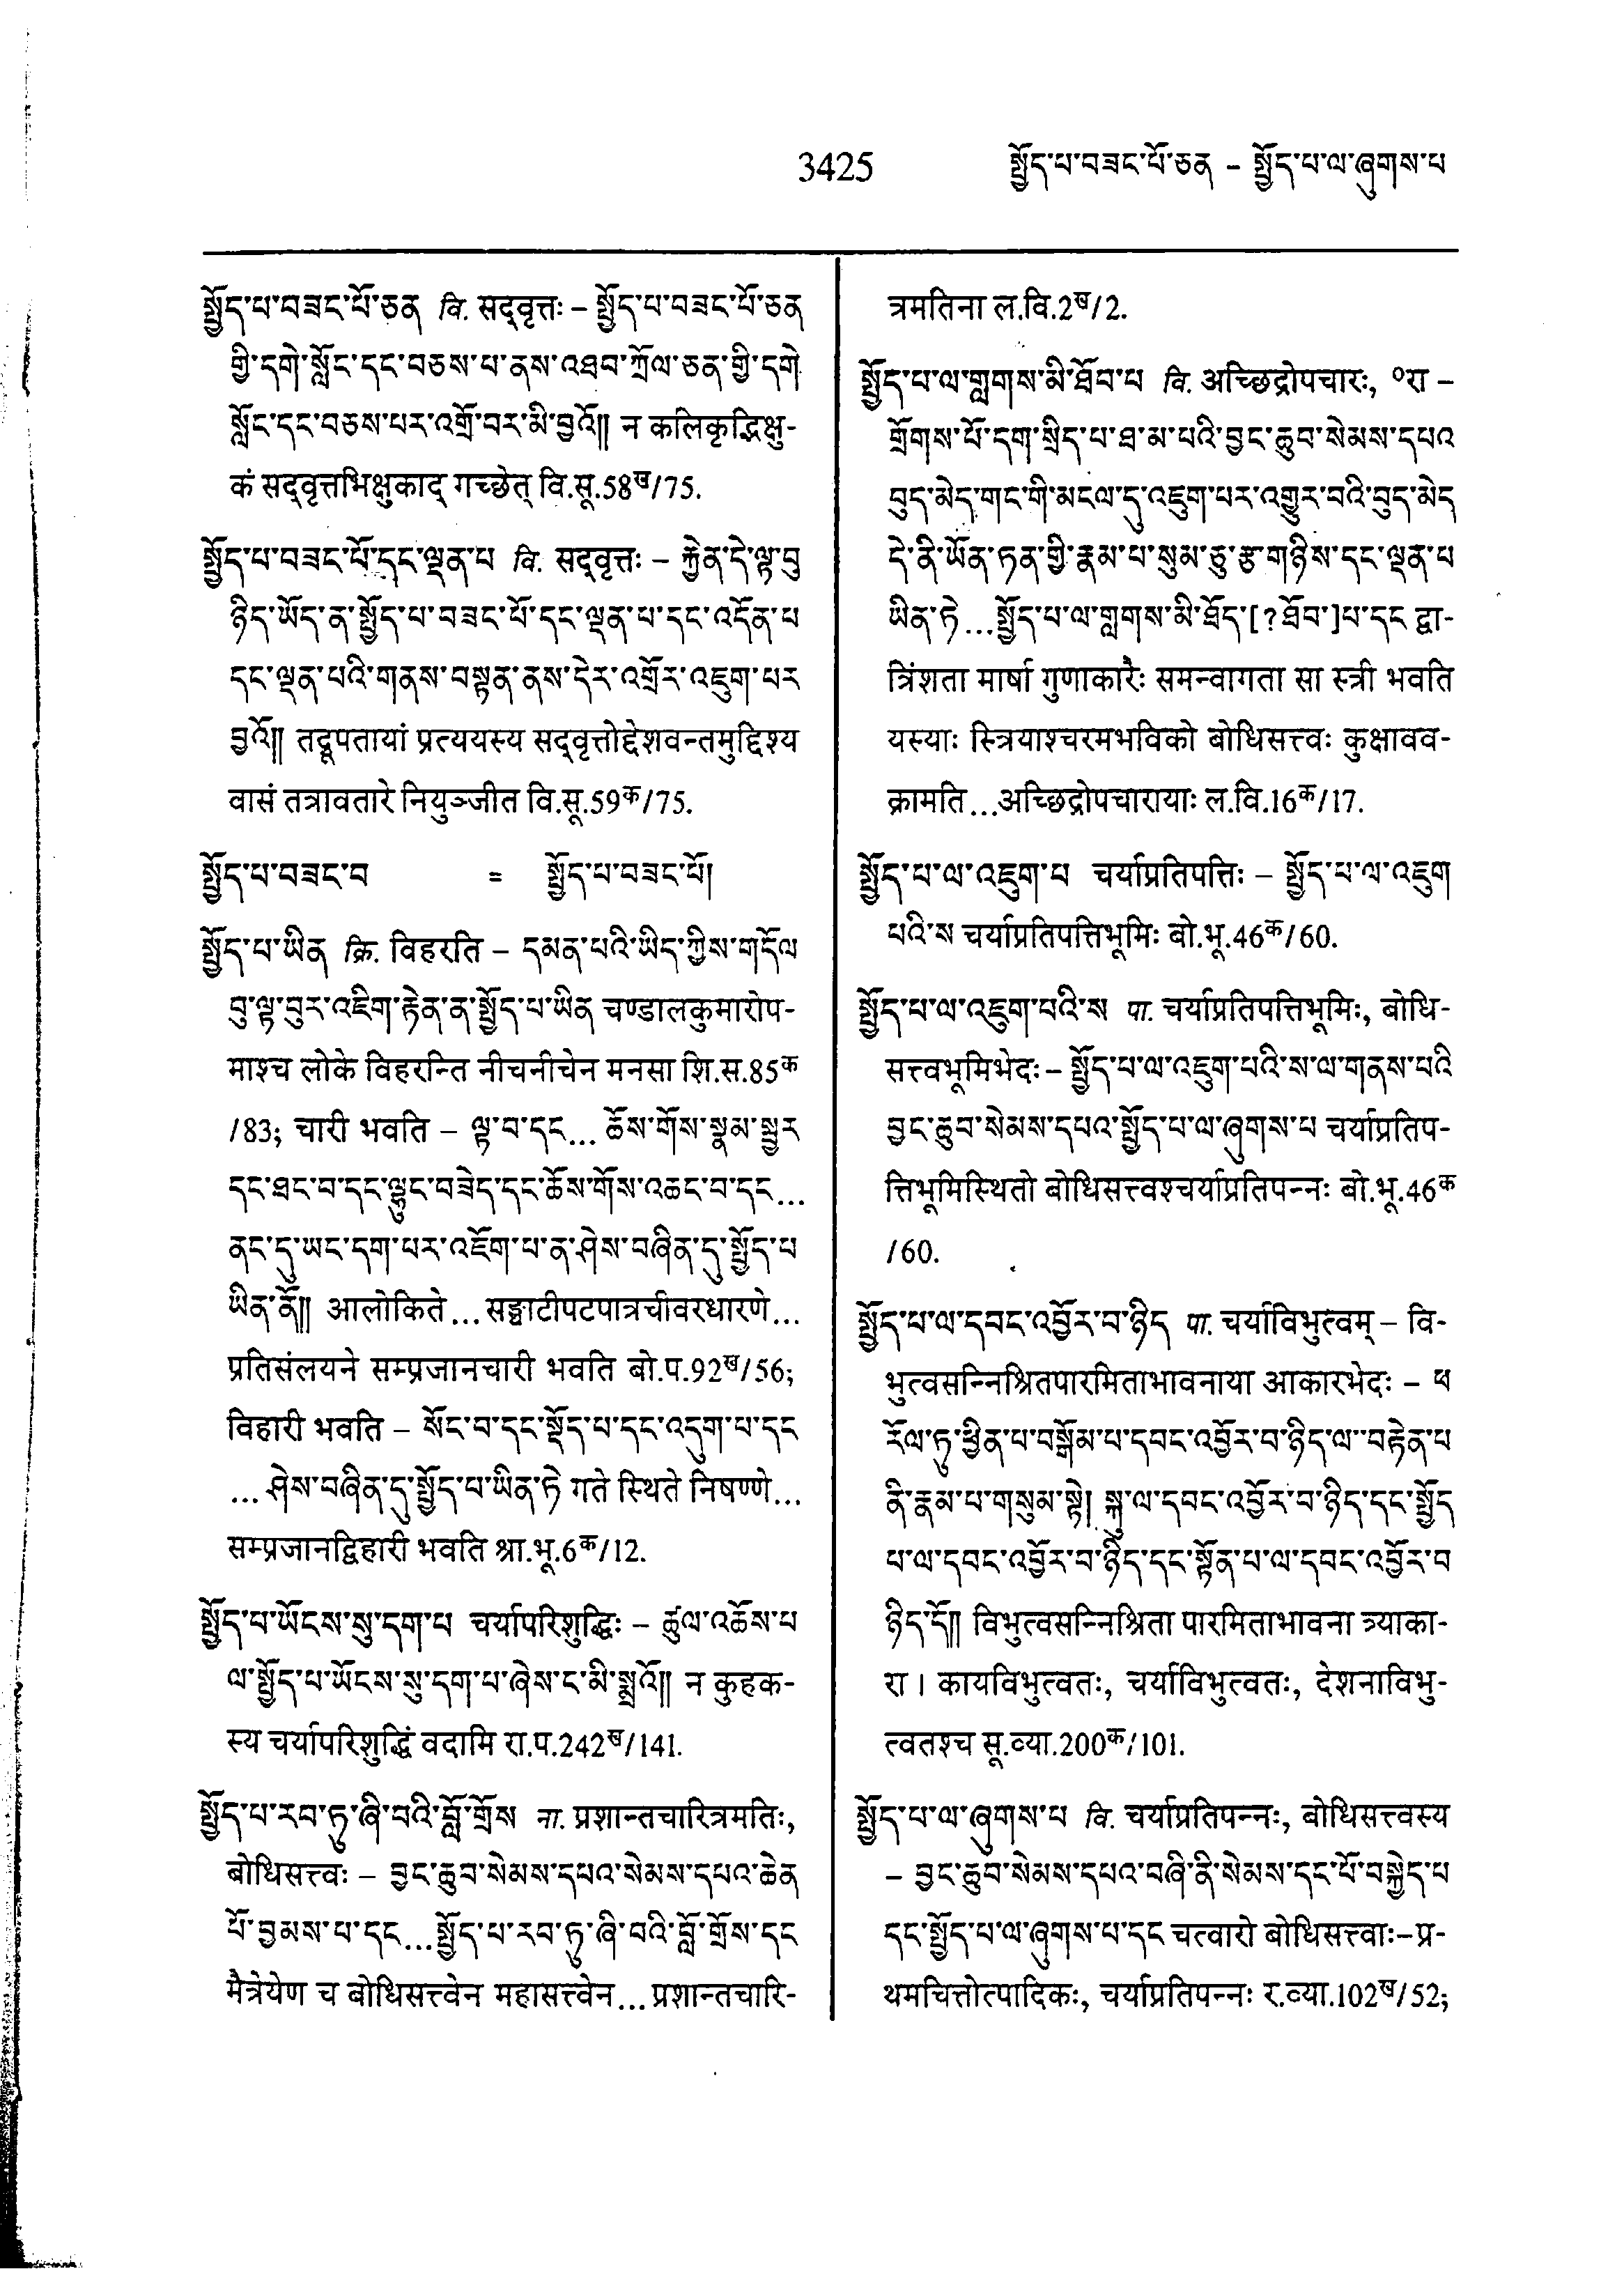 3425 སྤྱོད་པ་བཟང་པོ་ཅན – སྤྱོད་པ་ལ་ཞུགས་པ
སྤྱོད་པ་བཟང་པོ་ཅན वि. सद्‌वृत्तः – སྤྱོད་པ་བཟང་པོ་ཅན
གྱི་དགེ་སློང་དང་བཅས་པ་ནས་འཐབ་ཀྲོལ་ཅན་གྱི་དགེ
སློང་དང་བཅས་པར་འགྲོ་བར་མི་བྱའོ།། न कलिकृद्भिक्षु-
कं सद्‌वृत्तभिक्षुकाद् गच्छेत् वि.सू.58ख/75.
སྤྱོད་པ་བཟང་པོ་དང་ལྡན་པ वि. सद्‌वृत्तः – རྐྱེན་དེ་ལྟ་བུ
ཉིད་ཡོད་ན་སྤྱོད་པ་བཟང་པོ་དང་ལྡན་པ་དང་འདོན་པ
དང་ལྡན་པའི་གནས་བསྟན་ནས་དེར་འགྲོར་འཇུག་པར
བྱའོ།། तद्रूपतायां प्रत्ययस्य सद्‌वृत्तोद्देशवन्तमुद्दिश्य
वासं तत्रावतारे नियुञ्जीत वि.सू.59क/75.
སྤྱོད་པ་བཟང་བ = སྤྱོད་པ་བཟང་པོ།
སྤྱོད་པ་ཡིན क्रि. विहरति – དམན་པའི་ཡིད་ཀྱིས་གདོལ
བུ་ལྟ་བུར་འཇིག་རྟེན་ན་སྤྱོད་པ་ཡིན चण्डालकुमारोप-
माश्च लोके विहरन्ति नीचनीचेन मनसा शि.स.85क
/83; चारी भवति – ལྟ་བ་དང... ཆོས་གོས་སྣམ་སྦྱར
དང་ཐང་བ་དང་ལྷུང་བཟེད་དང་ཆོས་གོས་འཆང་བ་དང...
ནང་དུ་ཡང་དག་པར་འཇོག་པ་ན་ཤེས་བཞིན་དུ་སྤྱོད་པ
ཡིན་ནོ།། आलोकिते... सङ्घाटीपटपात्रचीवरधारणे...
प्रतिसंलयने सम्प्रजानचारी भवति बो.प.92ख/56;
विहारी भवति – སོང་བ་དང་སྡོད་པ་དང་འདུག་པ་དང
...ཤེས་བཞིན་དུ་སྤྱོད་པ་ཡིན་ཏེ गते स्थिते निषण्णे...
सम्प्रजानद्विहारी भवति श्रा.भू.6क/12.
སྤྱོད་པ་ཡོངས་སུ་དག་པ चर्यापरिशुद्धिः – ཚུལ་འཆོས་པ
ལ་སྤྱོད་པ་ཡོངས་སུ་དག་པ་ཞེས་ང་མི་སྨྲའོ།། न कुहक-
स्य चर्यापरिशुद्धिं वदामि रा.प.242ख/141.
སྤྱོད་པ་རབ་ཏུ་ཞི་བའི་བློ་གྲོས ना. प्रशान्तचारित्रमतिः,
बोधिसत्त्वः – བྱང་ཆུབ་སེམས་དཔའ་སེམས་དཔའ་ཆེན
པོ་བྱམས་པ་དང...སྤྱོད་པ་རབ་ཏུ་ཞི་བའི་བློ་གྲོས་དང
मैत्रेयेण च बोधिसत्त्वेन महासत्त्वेन... प्रशान्तचारि-
त्रमतिना ल.वि.2ख/2.
སྤྱོད་པ་ལ་གླགས་མི་ཐོབ་པ वि. अच्छिद्रोपचारः, ॰रा –
གྲོགས་པོ་དག་སྲིད་པ་ཐ་མ་པའི་བྱང་ཆུབ་སེམས་དཔའ
བུད་མེད་གང་གི་མངལ་དུ་འཇུག་པར་འགྱུར་བའི་བུད་མེད
དེ་ནི་ཡོན་ཏན་གྱི་རྣམ་པ་སུམ་ཅུ་རྩ་གཉིས་དང་ལྡན་པ
ཡིན་ཏེ...སྤྱོད་པ་ལ་གླགས་མི་ཐོད་[?ཐོབ་]པ་དང द्वा-
त्रिंशता मार्षा गुणाकारैः समन्वागता सा स्त्री भवति
यस्याः स्त्रियाश्चरमभविको बोधिसत्त्वः कुक्षावव-
क्रामति...अच्छिद्रोपचारायाः ल.वि.16क/17.
སྤྱོད་པ་ལ་འཇུག་པ चर्याप्रतिपत्तिः – སྤྱོད་པ་ལ་འཇུག
པའི་ས चर्याप्रतिपत्तिभूमिः बो.भू.46क/60.
སྤྱོད་པ་ལ་འཇུག་པའི་ས पा. चर्याप्रतिपत्तिभूमिः, बोधि-
सत्त्वभूमिभेदः – སྤྱོད་པ་ལ་འཇུག་པའི་ས་ལ་གནས་པའི
བྱང་ཆུབ་སེམས་དཔའ་སྤྱོད་པ་ལ་ཞུགས་པ चर्याप्रतिप-
त्तिभूमिस्थितो बोधिसत्त्वश्चर्याप्रतिपन्नः बो.भू.46क
/60.
སྤྱོད་པ་ལ་དབང་འབྱོར་བ་ཉིད पा. चर्याविभुत्वम् – वि-
भुत्वसन्निश्रितपारमिताभावनाया आकारभेदः – ཕ
རོལ་ཏུ་ཕྱིན་པ་བསྒོམ་པ་དབང་འབྱོར་བ་ཉིད་ལ་བརྟེན་པ
ནི་རྣམ་པ་གསུམ་སྟེ། སྐུ་ལ་དབང་འབྱོར་བ་ཉིད་དང་སྤྱོད
པ་ལ་དབང་འབྱོར་བ་ཉིད་དང་སྟོན་པ་ལ་དབང་འབྱོར་བ
ཉིད་དོ།། विभुत्वसन्निश्रिता पारमिताभावना त्र्याका-
रा । कायविभुत्वतः, चर्याविभुत्वतः, देशनाविभु-
त्वतश्च सू.व्या.200क/101.
སྤྱོད་པ་ལ་ཞུགས་པ वि. चर्याप्रतिपन्नः, बोधिसत्त्वस्य
– བྱང་ཆུབ་སེམས་དཔའ་བཞི་ནི་སེམས་དང་པོ་བསྐྱེད་པ
དང་སྤྱོད་པ་ལ་ཞུགས་པ་དང चत्वारो बोधिसत्त्वाः–प्र-
थमचित्तोत्पादिकः, चर्याप्रतिपन्नः र.व्या.102ख/52;